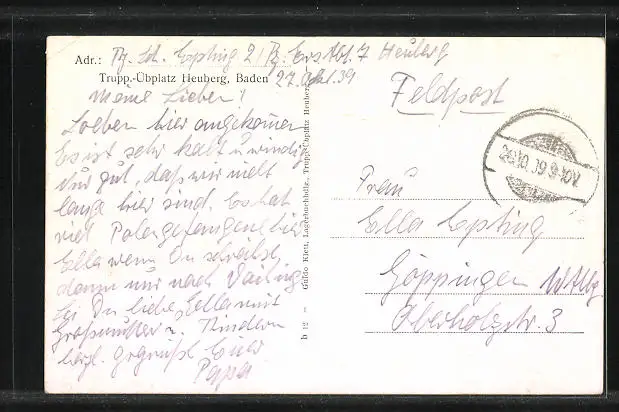 Adr.: Pz. Sch. Epting 2/Pz. Ers. Abt. 7 Heuberg
Trupp.-Übplatz Heuberg, Baden 27. Okt. 39
Meine Lieben!
Soeben hier angekommen
Es ist sehr kalt u. windig
Nur gut, daß wir nicht
lange hier sind. Es hat
viel Polengefangene hier
Ella wenn Du schreibst,
dann nur nach Vaihing.
Sei Du liebe Ella mit
Großmutter u. Kindern
herzl. gegrüßt Euer
Papa
b 12 — Guido Klett, Lagerbuchholtz., Trupp.-Übplatz Heuberg
Feldpost
Frau
Ella Epting
Göppingen Wttbg
Oberholzstr. 3